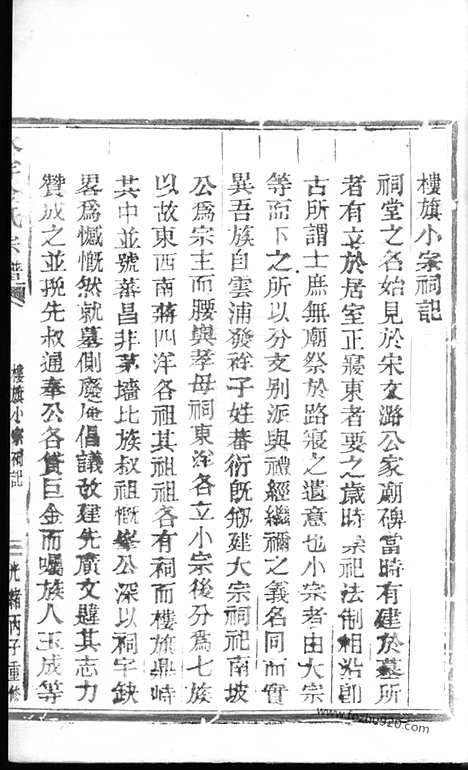 樓旗小宗祠記
祠堂之名始見於宋文潞公家廟碑當時有建於墓所
者有立於居室正寢東者要之歲時祭祀法制相沿卽
古所謂士庶無廟祭於路寢之遺意也小宗者由大宗
等而下之所以分支别派與禮經繼禰之義名同而實
異吾族自雲浦發祥子姓蕃衍旣剏建大宗祠祀南坡
公爲宗主而腰與孝母祠東洋各立小宗後分爲七族
以故東西南蔣四洋各祖其祖祖各有祠而樓旗鼎峙
其中並號蕃昌非茅墻比族叔祖慨峯公深以祠宇缺
畧爲憾慨然就墓側廢庵倡議故建先廣文韙其志力
贊成之並挽先叔通奉公各貲巨金而囑族人玉成等
氏宗譜
樓旗小宗祠記
一
光緒丙子重修
www.fozhu920.com